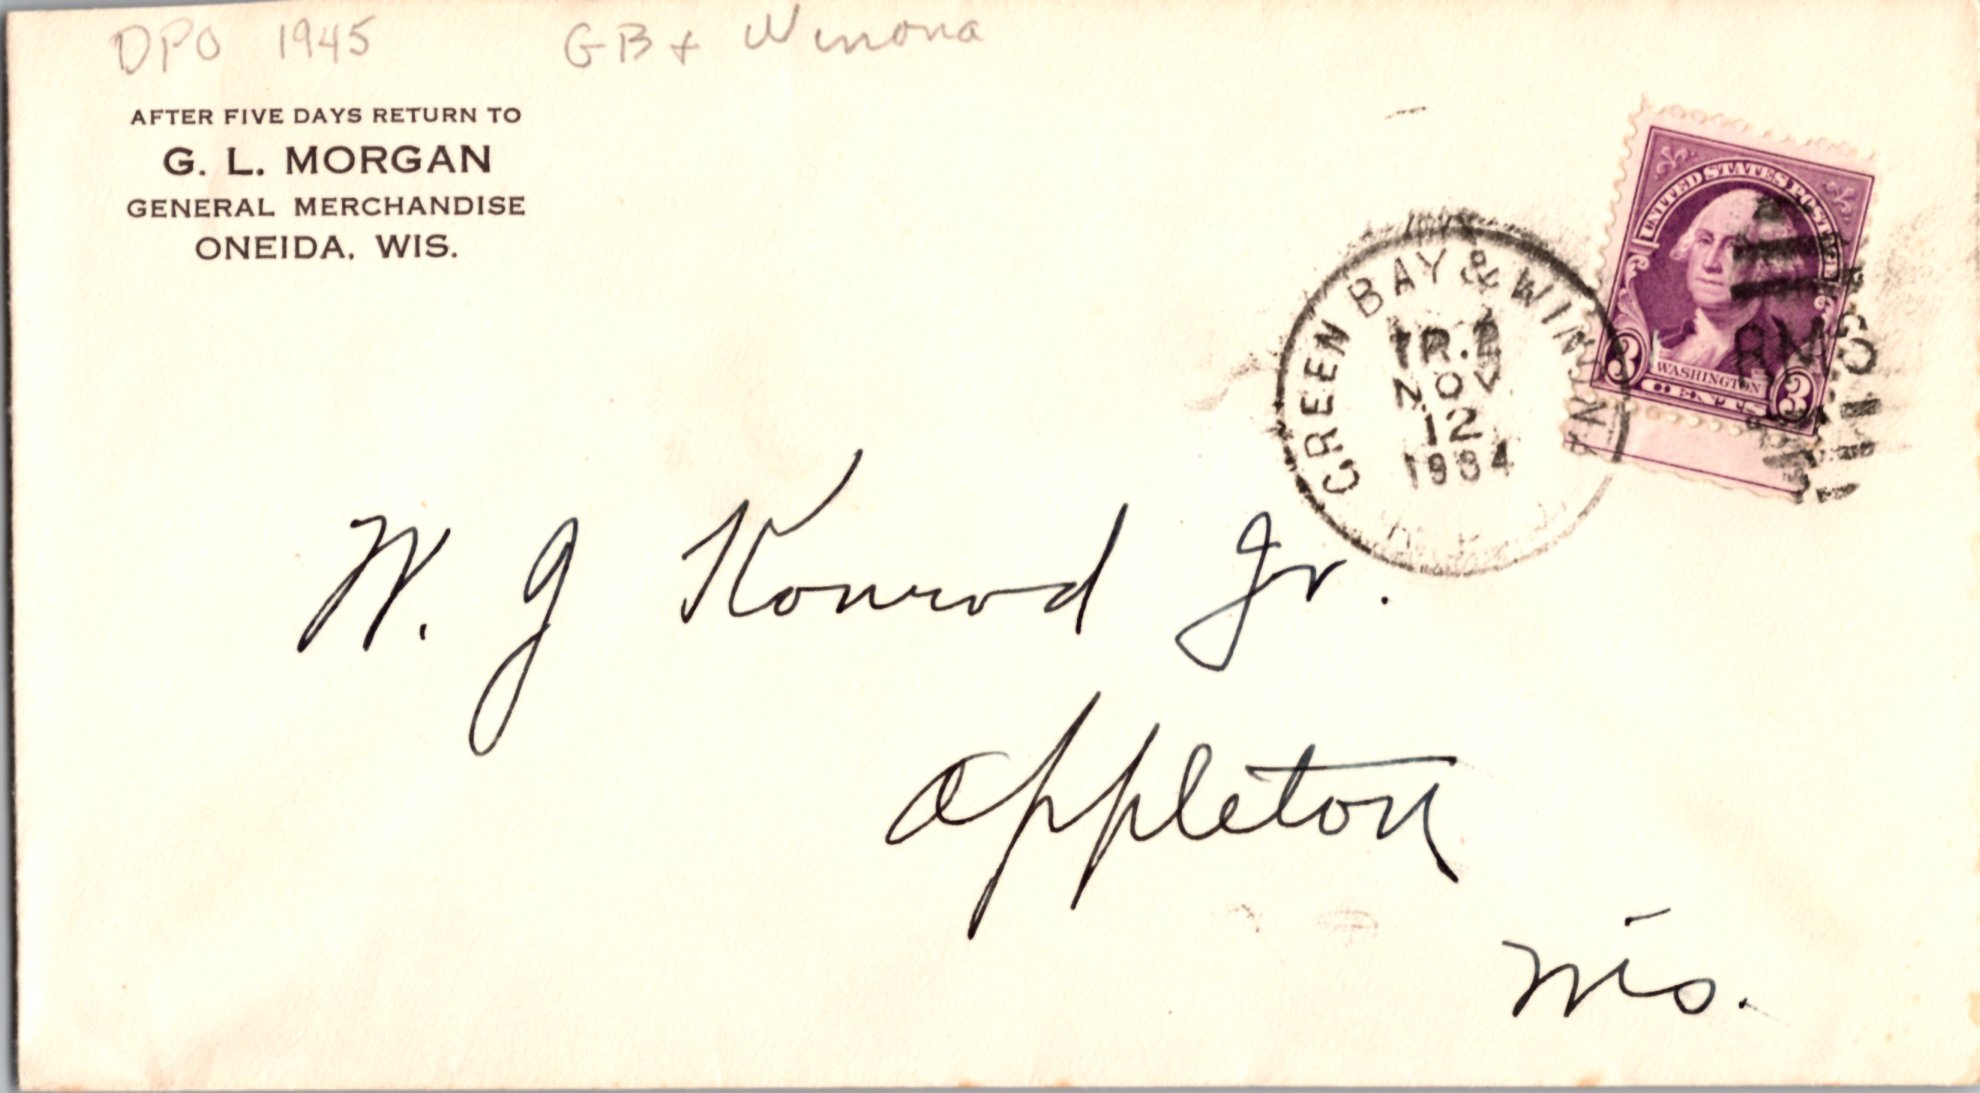 DPO 1945 GB + Winona
AFTER FIVE DAYS RETURN TO
G. L. MORGAN
GENERAL MERCHANDISE
ONEIDA, WIS.
UNITED STATES POSTAGE
3 WASHINGTON 3
CENTS
GREEN BAY & WINONA
TR.
NOV
12
1934
R.P.O.
W. J Konrad Jr.
Appleton
Wis.